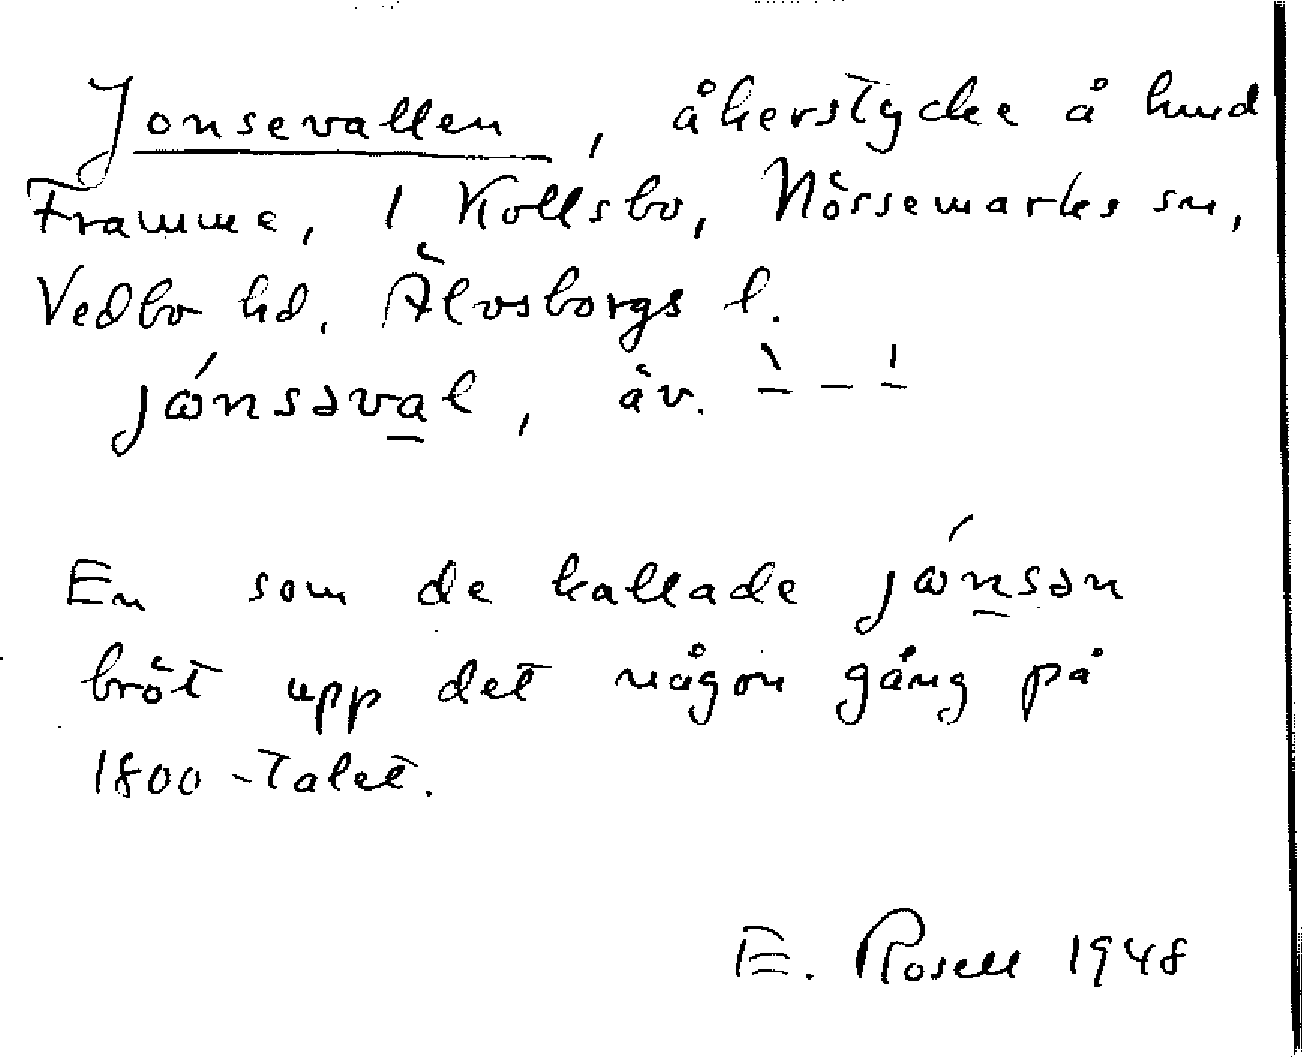 Jonsevallen, åkerstycke å hmd
Framme, 1 Kollsbo, Nössemarks sn,
Vedbo hd, Älvsborgs l.
jónsəval, äv. `– – –´
En som de kallade jónsən
bröt upp det någon gång på
1800-talet.
E. Rosell 1948